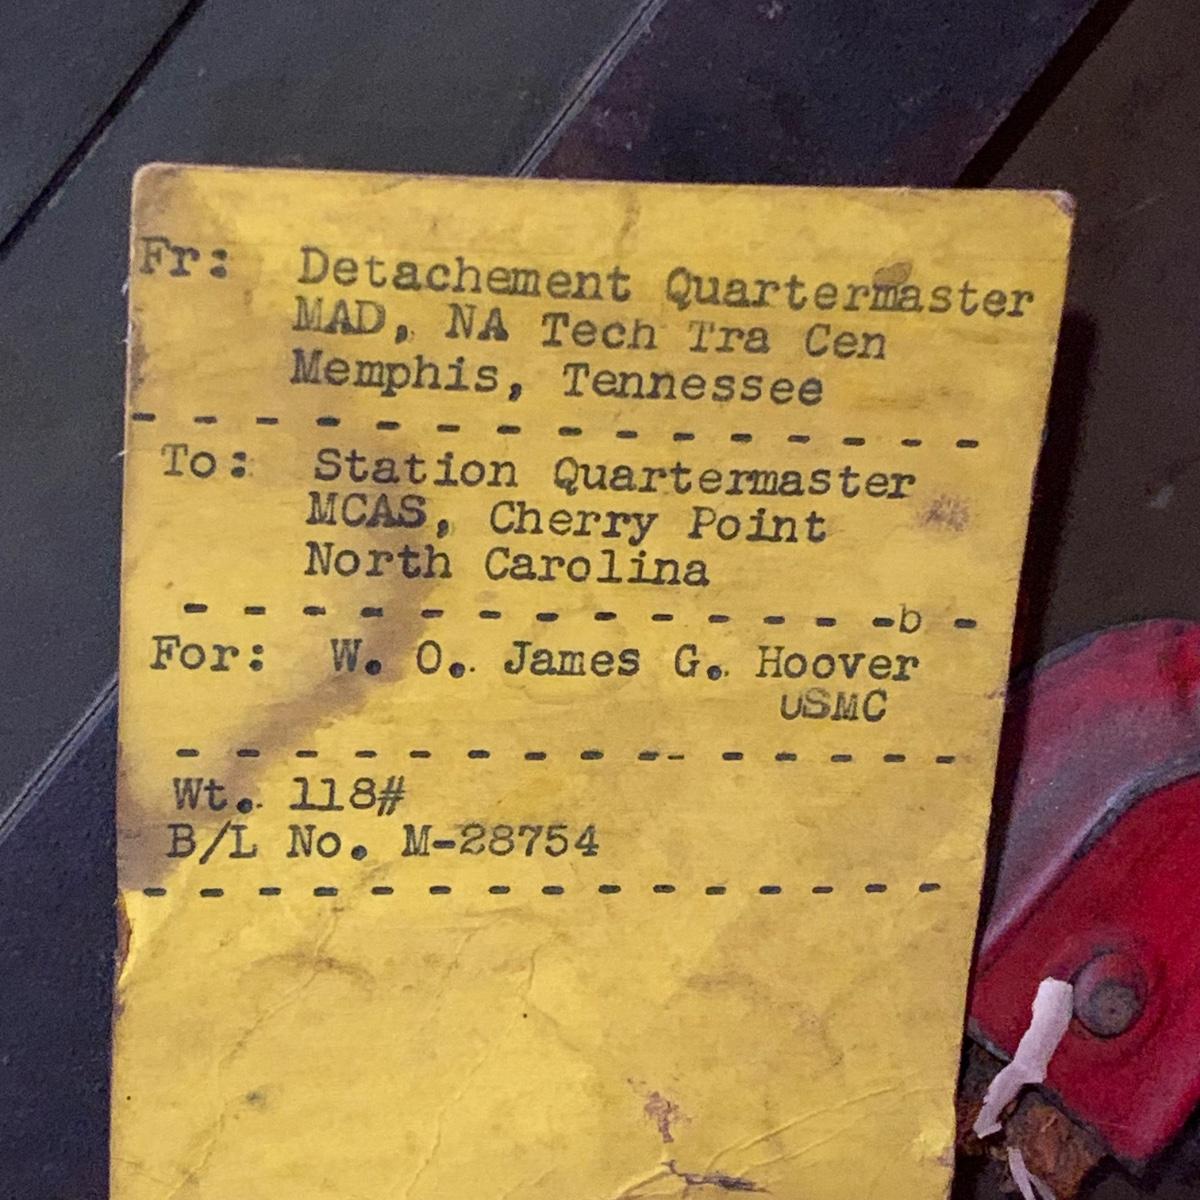 Fr: Detachement Quartermaster
MAD, NA Tech Tra Cen
Memphis, Tennessee
- - - - - - - - - - - - - - -
To: Station Quartermaster
MCAS, Cherry Point
North Carolina
- - - - - - - - - - - - -b -
For: W. O. James G. Hoover
USMC
- - - - - - - - - -- - - - - -
Wt. 118#
B/L No. M-28754
- - - - - - - - - - - - - - -